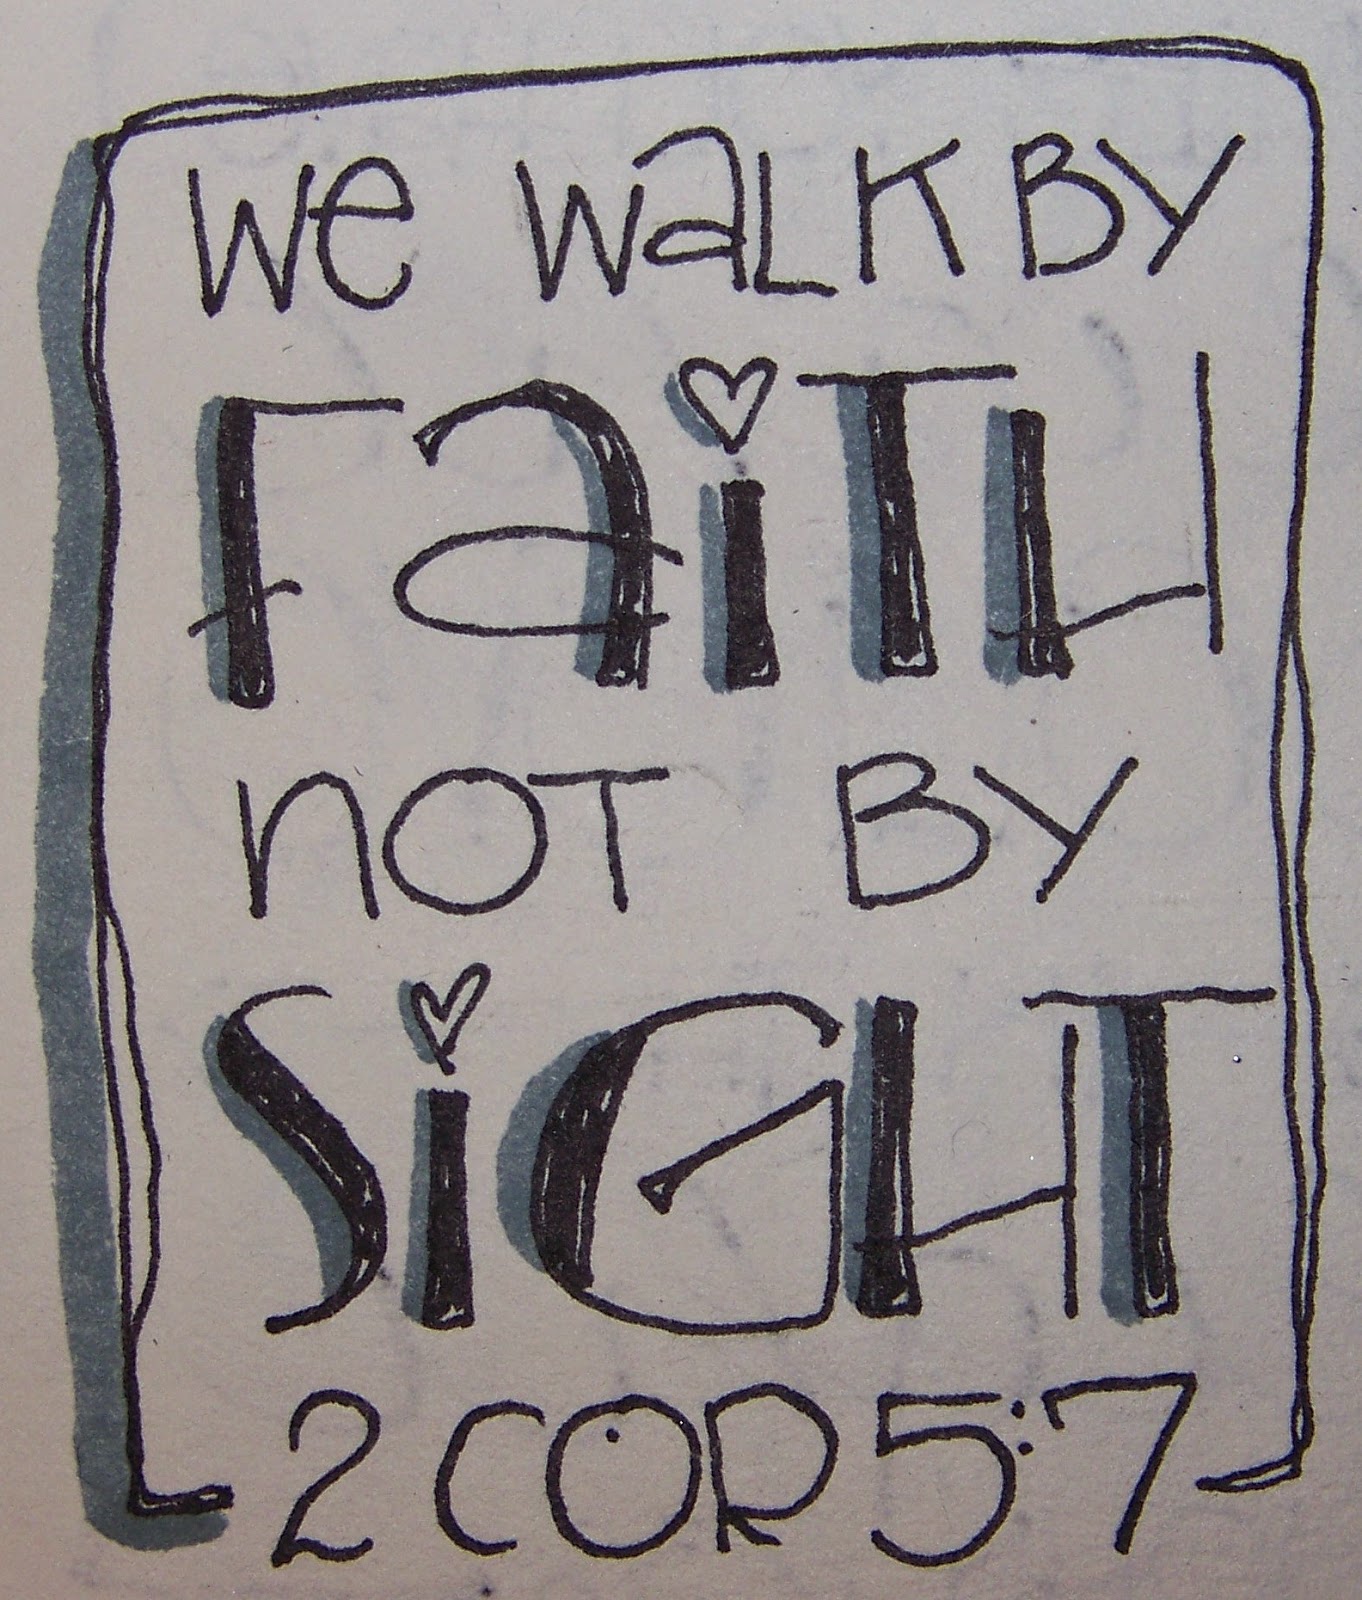 We WaLK BY
FaiTH
nOT BY
SiGHT
2 COR 5:7